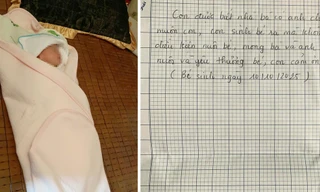 Con được biết nhà bà có anh chị
muốn con, con sinh bé ra mà không
điều kiện nuôi bé, mong bà và anh
nuôi và yêu thương bé, con cảm ơn
( Bé sinh ngày 10/10/2025 )